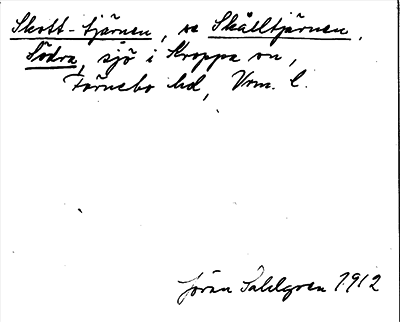 Skott-tjärnen, se Skålltjärnen,
Södra, sjö i Kroppa sn,
Färnebo hd, Vrm. l.
Jöran Sahlgren 1912